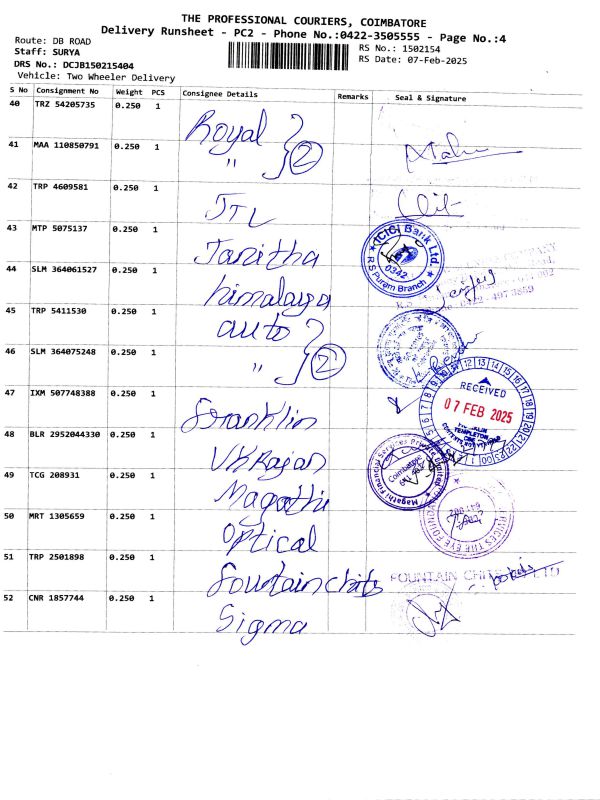 THE PROFESSIONAL COURIERS, COIMBATORE
Delivery Runsheet - PC2 - Phone No.:0422-3505555 - Page No.:4
Route: DB ROAD
RS No.: 1502154
Staff: SURYA
RS Date: 07-Feb-2025
DRS No.: DCJB150215404
Vehicle: Two Wheeler Delivery
S No Consignment No Weight PCS Consignee Details Remarks Seal & Signature
40 TRZ 54205735 0.250 1 Royal
41 MAA 110850791 0.250 1 " 2
42 TRP 4609581 0.250 1 JTL
43 MTP 5075137 0.250 1 Tanitha
ICICI Bank Ltd.
0342
R.S Puram Branch
44 SLM 364061527 0.250 1 himalaya
45 TRP 5411530 0.250 1 auto
46 SLM 364075248 0.250 1 " 2
RECEIVED
07 FEB 2025
47 IXM 507748388 0.250 1 Franklin
48 BLR 2952044330 0.250 1 VK Rajan
49 TCG 208931 0.250 1 Magathi
Magathi Financial Services Private Limited
Coimbatore
50 MRT 1305659 0.250 1 Optical
THE EYE FOUNDATION
51 TRP 2501898 0.250 1 Fountain chits
FOUNTAIN CHITS LTD
52 CNR 1857744 0.250 1 Sigma